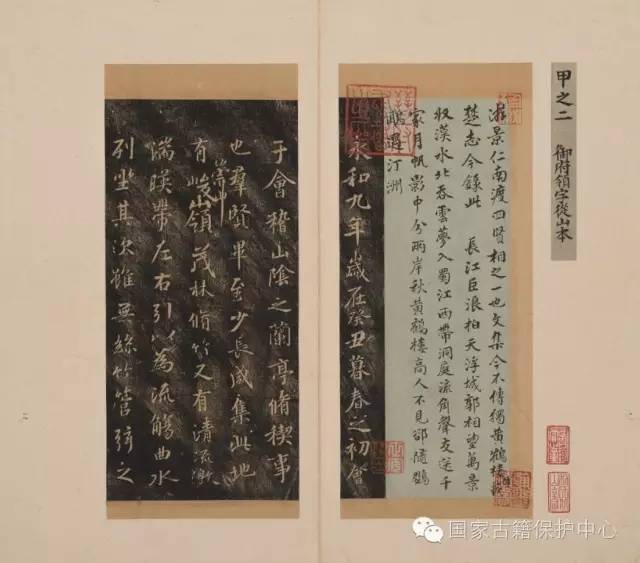 甲之二 御府領字從山本
游景仁南渡四賢相之一也文集今不傳獨黄鶴樓
楚志今錄此 長江巨浪拍天浮城郭相望萬景
收漢水北吞雲夢入蜀江西帶洞庭流角聲交送千
家月帆影中分兩岸秋黄鶴樓高人不見卻隨鸚
鵡過汀洲
永和九年歲在癸丑暮春之初會
于會稽山陰之蘭亭脩稧事
也羣賢畢至少長咸集此地
有崇山峻嶺茂林脩竹又有清流激
湍暎帶左右引以為流觴曲水
列坐其次雖無絲竹管弦之
国家古籍保护中心